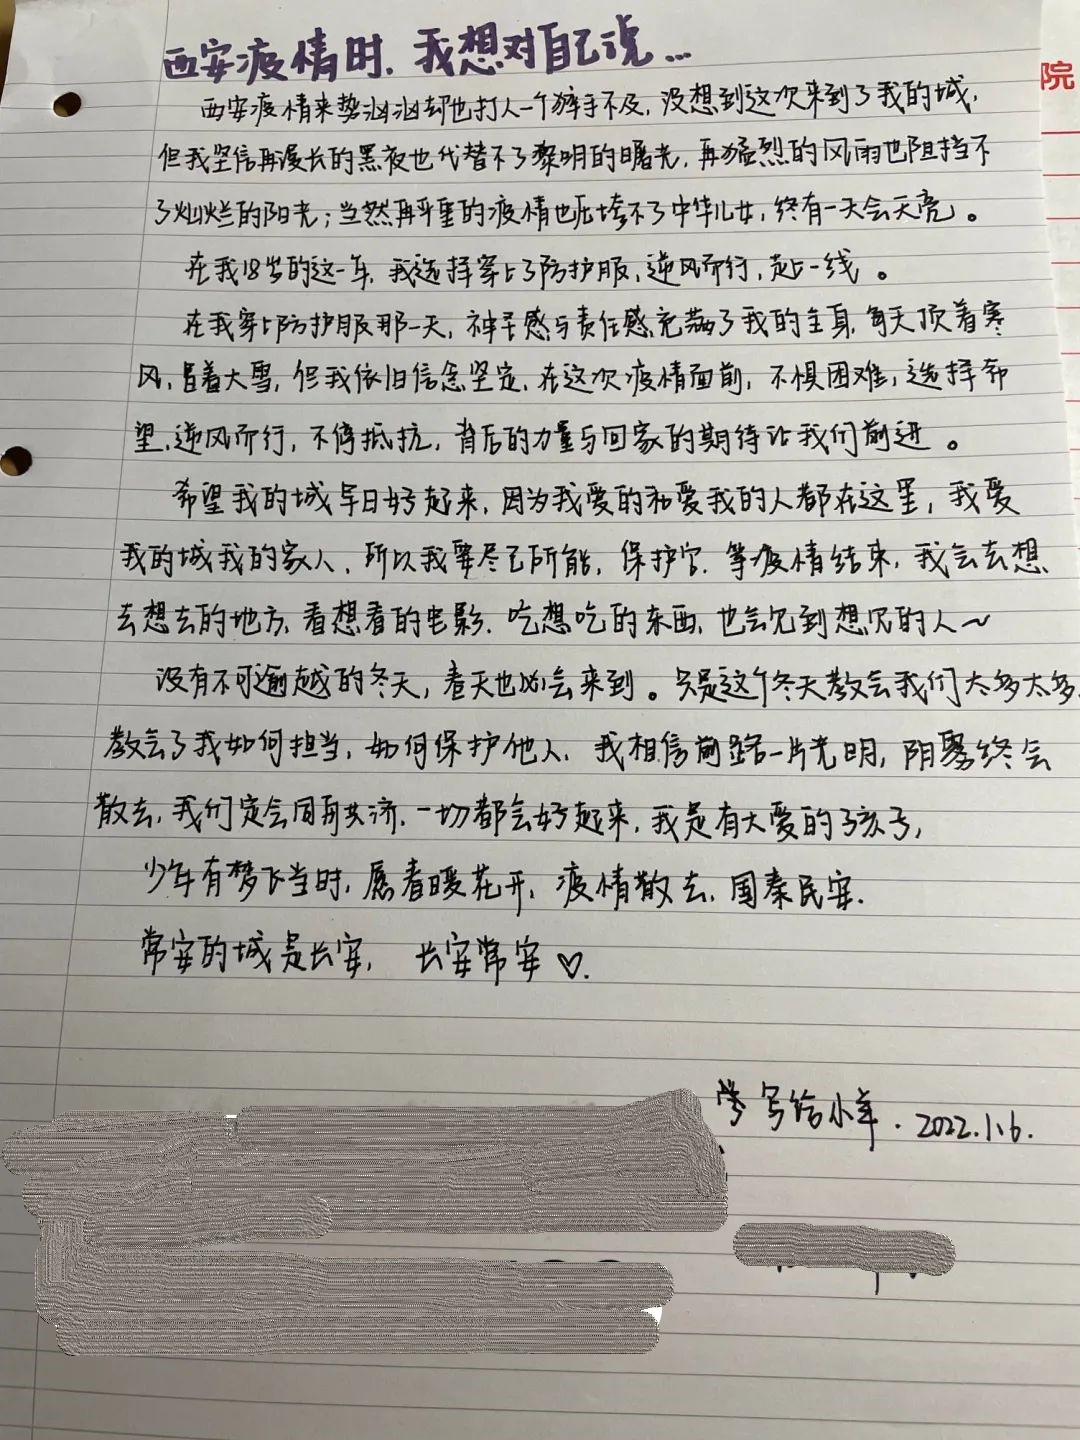 西安疫情时.我想对自己说...
院
西安疫情来势汹汹却也打人一个猝手不及,没想到这次来到了我的城,
但我坚信再漫长的黑夜也代替不了黎明的曙光,再猛烈的风雨也阻挡不
了灿烂的阳光;当然再严重的疫情也压垮不了中华儿女,终有一天会天亮。
在我18岁的这一年,我选择穿上了防护服,逆风而行,赴一线。
在我穿上防护服那一天,神圣感与责任感充满了我的全身,每天顶着寒
风,冒着大雪,但我依旧信念坚定.在这次疫情面前,不惧困难,选择希
望,逆风而行,不停抵抗,背后的力量与回家的期待让我们前进。
希望我的城早日好起来,因为我爱的和爱我的人都在这里,我爱
我的城我的家人,所以我要尽己所能,保护它.等疫情结束,我会去想
去想去的地方,看想看的电影.吃想吃的东西,也会见到想见的人~
没有不可逾越的冬天,春天也必会来到。只是这个冬天教会我们太多太多,
教会了我如何担当,如何保护他人,我相信前路一片光明,阴霾终会
散去,我们定会同舟共济.一切都会好起来,我是有大爱的孩子,
少年有梦飞当时,愿春暖花开,疫情散去,国泰民安.
常安的城是长安, 长安常安♡.
写给小羊.2022.1.6.